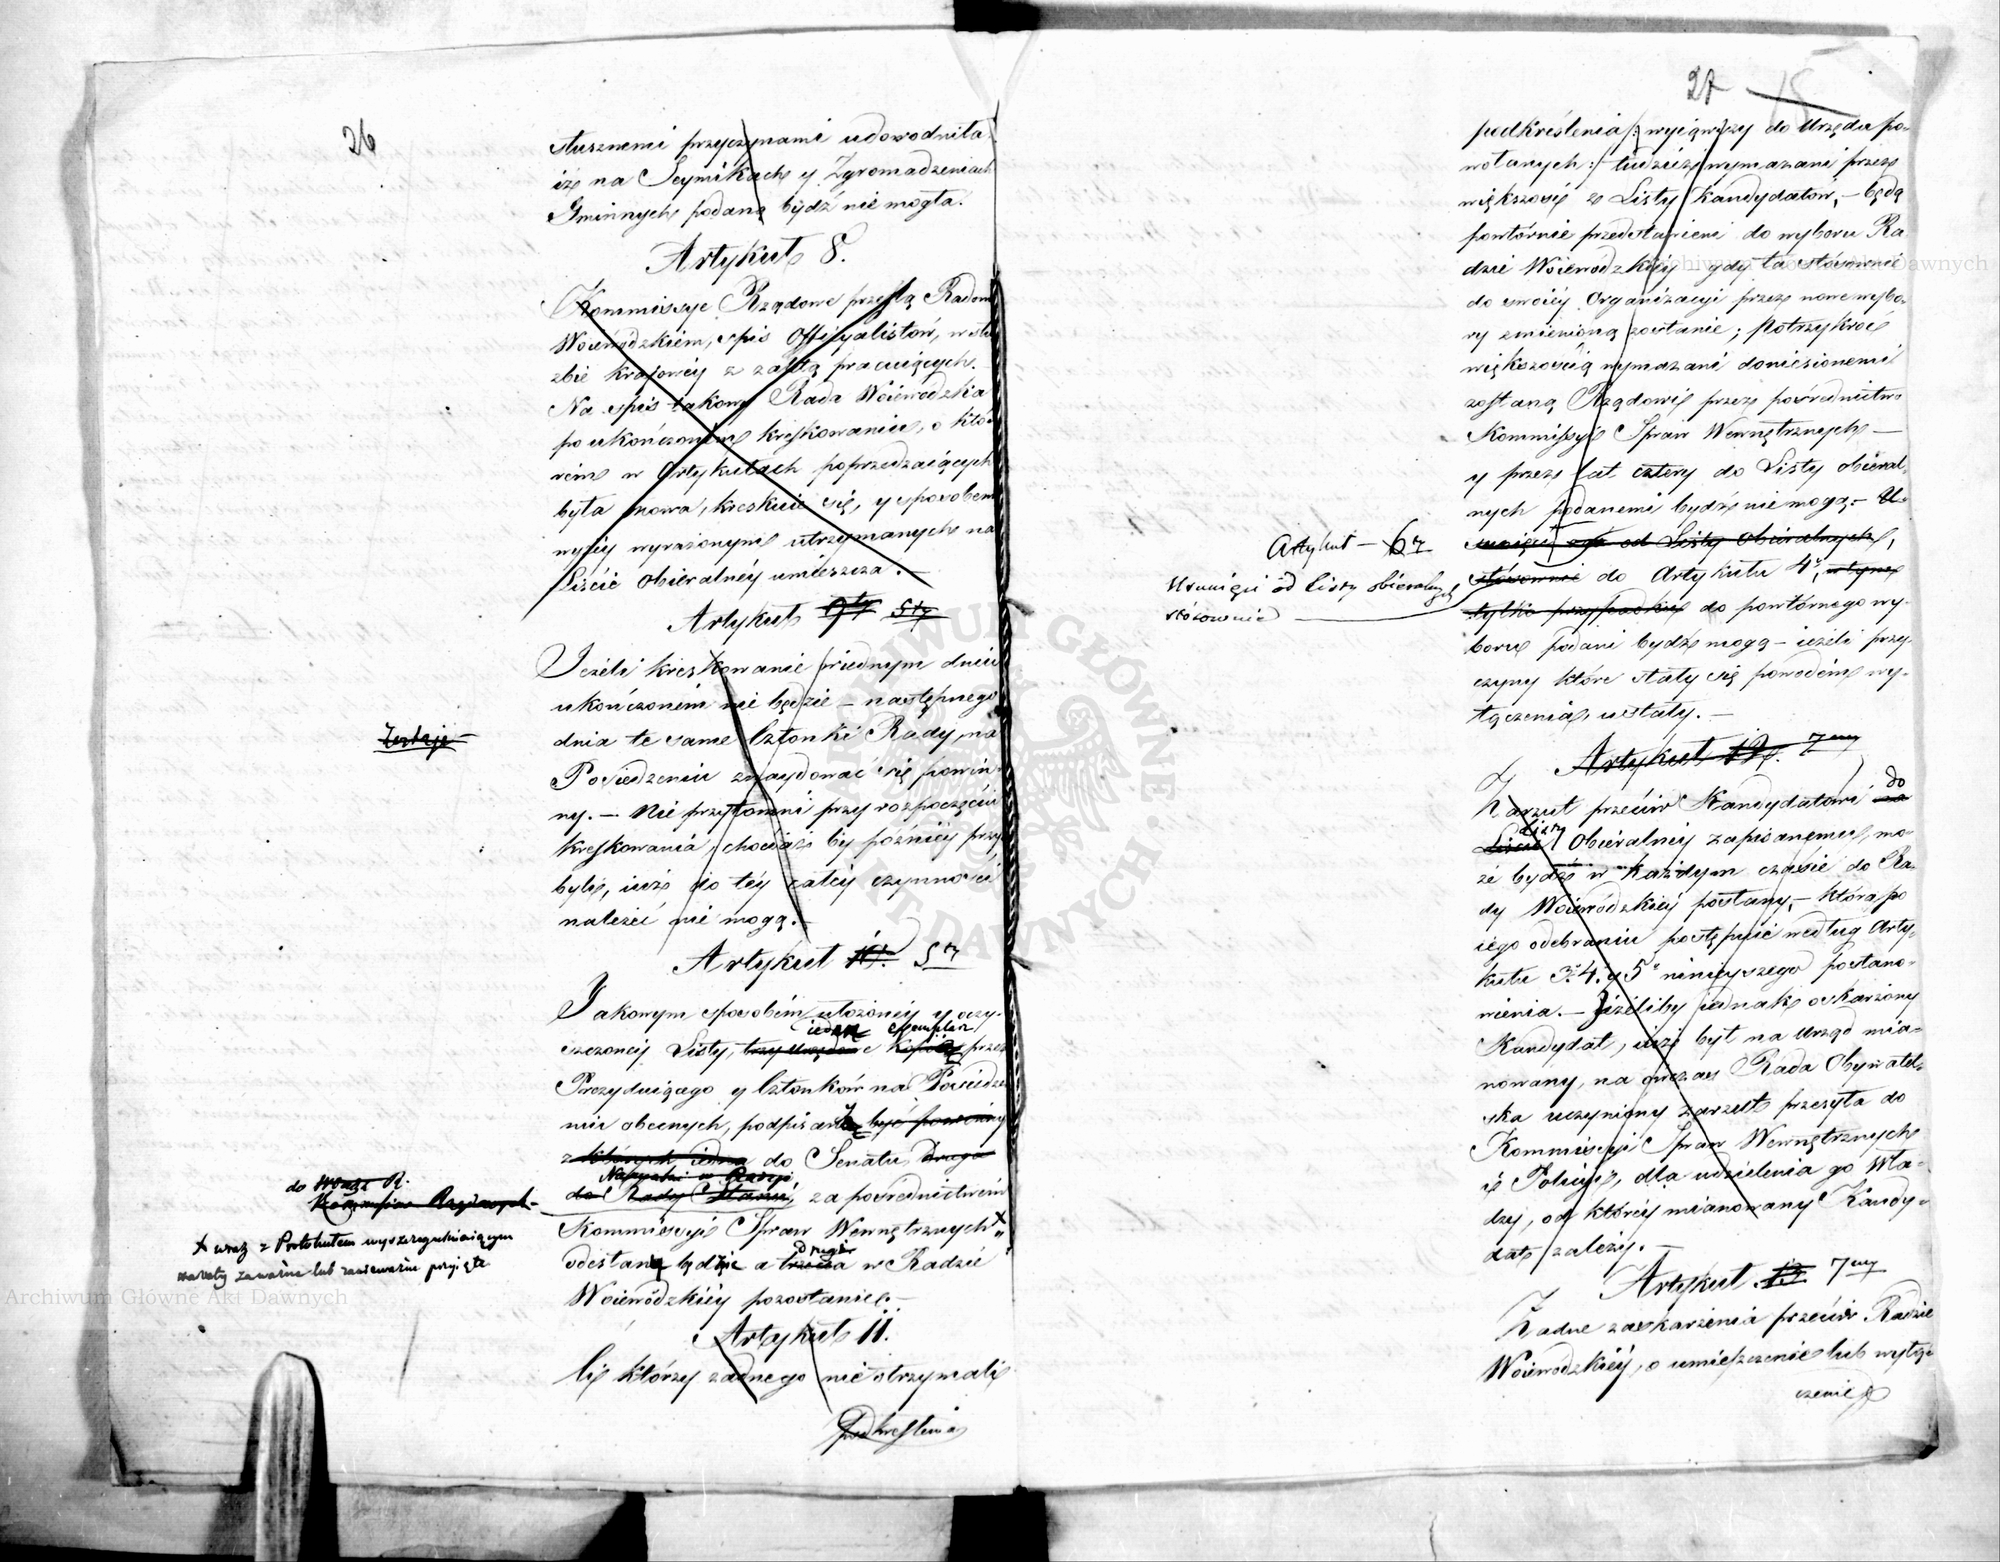 26
słusznemi przyczynami udowodniła
iż na Seymikach y Zgromadzeniach
Gminnych podaną bydź nie mogła.
Artykuł 8.
Kommissye Rządowe prześlą Radom
Woiewódzkiem, spis Officyalistów, w słu
zbie kraiowey z zasłą pracuiących.
Na spis takowy Rada Woiewódzka
po ukończonem kreskowaniu, o któ
rem w Artykułach poprzedzaiących
była mowa, kreskuie się, y sposobem
wyżey wyrażonym utrzymanych na
Liście Obieralnéy umieszcza.
Artykuł 9ty 5ty
Jeżeli kreskowanie w iednym dniu
ukończoném nie będzie – następnego
dnia te same Członki Rady na
Posiedzeniu znaydować się powin
ny. – Nie przytomni przy rozpoczęciu
kreskowania, chociaż by późniéy przy
byli, iuż do téy całéy czynności
należeć nie mogą. –
Artykuł 10. 5ty
Jakowym sposobem ułożonéy y oczy
szczonéy Listy, trzy urzędowe kopie przez
ieden exemplarz
Prezyduiącego y Członków na Posiedze
niu obecnych, podpisany być powinny
z których iedna do Senatu druga
do Rady Stanu, za pośrednictwem
Kommissyi Spraw Wewnętrznych
odesłany będzie a trzecia w Radzie
drugi
Woiewódzkiéy pozostanie. –
do
Kommissyow Rządowych
+ wraz z Protokułem wyszczegulniaiącym
zarzuty
Artykuł 11.
Ci którzy żadnego nie otrzymali
podkreślenia
27 15
podkreślenia /: wyiąwszy do Urzędu po-
wołanych :/ tudzież wymazani przez
większość z Listy Kandydatów, – będą
powtórnie przedstawieni do wyboru Ra
dzie Woiewódzkiéy gdy ta stósownie
do swoiéy Organizacyi przez nowe wybo-
ry zmienioną zostanie; Potrzykroć
większością wymazani doniesionemi
zostaną Rządowi przez pośrednictwo
Kommissyi Spraw Wewnętrznych –
y przez lat cztery do Listy obieral-
nych podanemi bydź nie mogą. – U-
sunięci od Listy Obieralnych,
stósownie do Artykułu 4o, w tym
tylko przypadku do powtórnego wy-
boru podani bydź mogą – ieżeli przy-
czyny które stały się powodem wy-
łączenia, ustały. –
Artykuł – 6ty
Usunięci od listy obieralnych
stósownie
Artykuł 12. 7my
Zarzut przeciw Kandydatowi na
do
Liście Obieralnéy zapisanemu, mo-
listy
że bydź w każdym czasie do Ra-
dy Woiewódzkiéy posłany, – która po
iego odebraniu postąpić według Arty-
kułu 3. 4. y 5o ninieyszego postano-
wienia. – Jeżeliby iednak oskarżony
Kandydat, iuż był na Urząd mia-
nowany, na ówczas Rada Obywatel-
ska uczyniony zarzut przesyła do
Kommissyi Spraw Wewnętrznych
i Policyi, dla udzielenia go Wła-
dzy, od któréy mianowany Kandy-
dat zależy. –
Artykuł 13 7my
Żadne zaskarżenia przeciw Radzie
Woiewódzkiéy, o umieszczenie lub wyłą-
czenie
Archiwum Główne Akt Dawnych
Archiwum Główne Akt Dawnych
ARCHIWUM GŁÓWNE AKT DAWNYCH